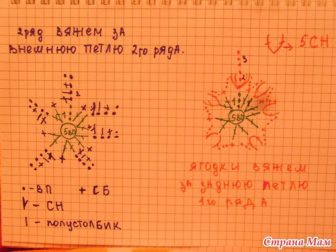 2ряд вяжем за
внешнюю петлю 2го ряда.
5СН
3
2
• - ВП + СБ
СН
полустолбик
ягодки вяжем
за заднюю петлю
1го ряда
Страна Мам